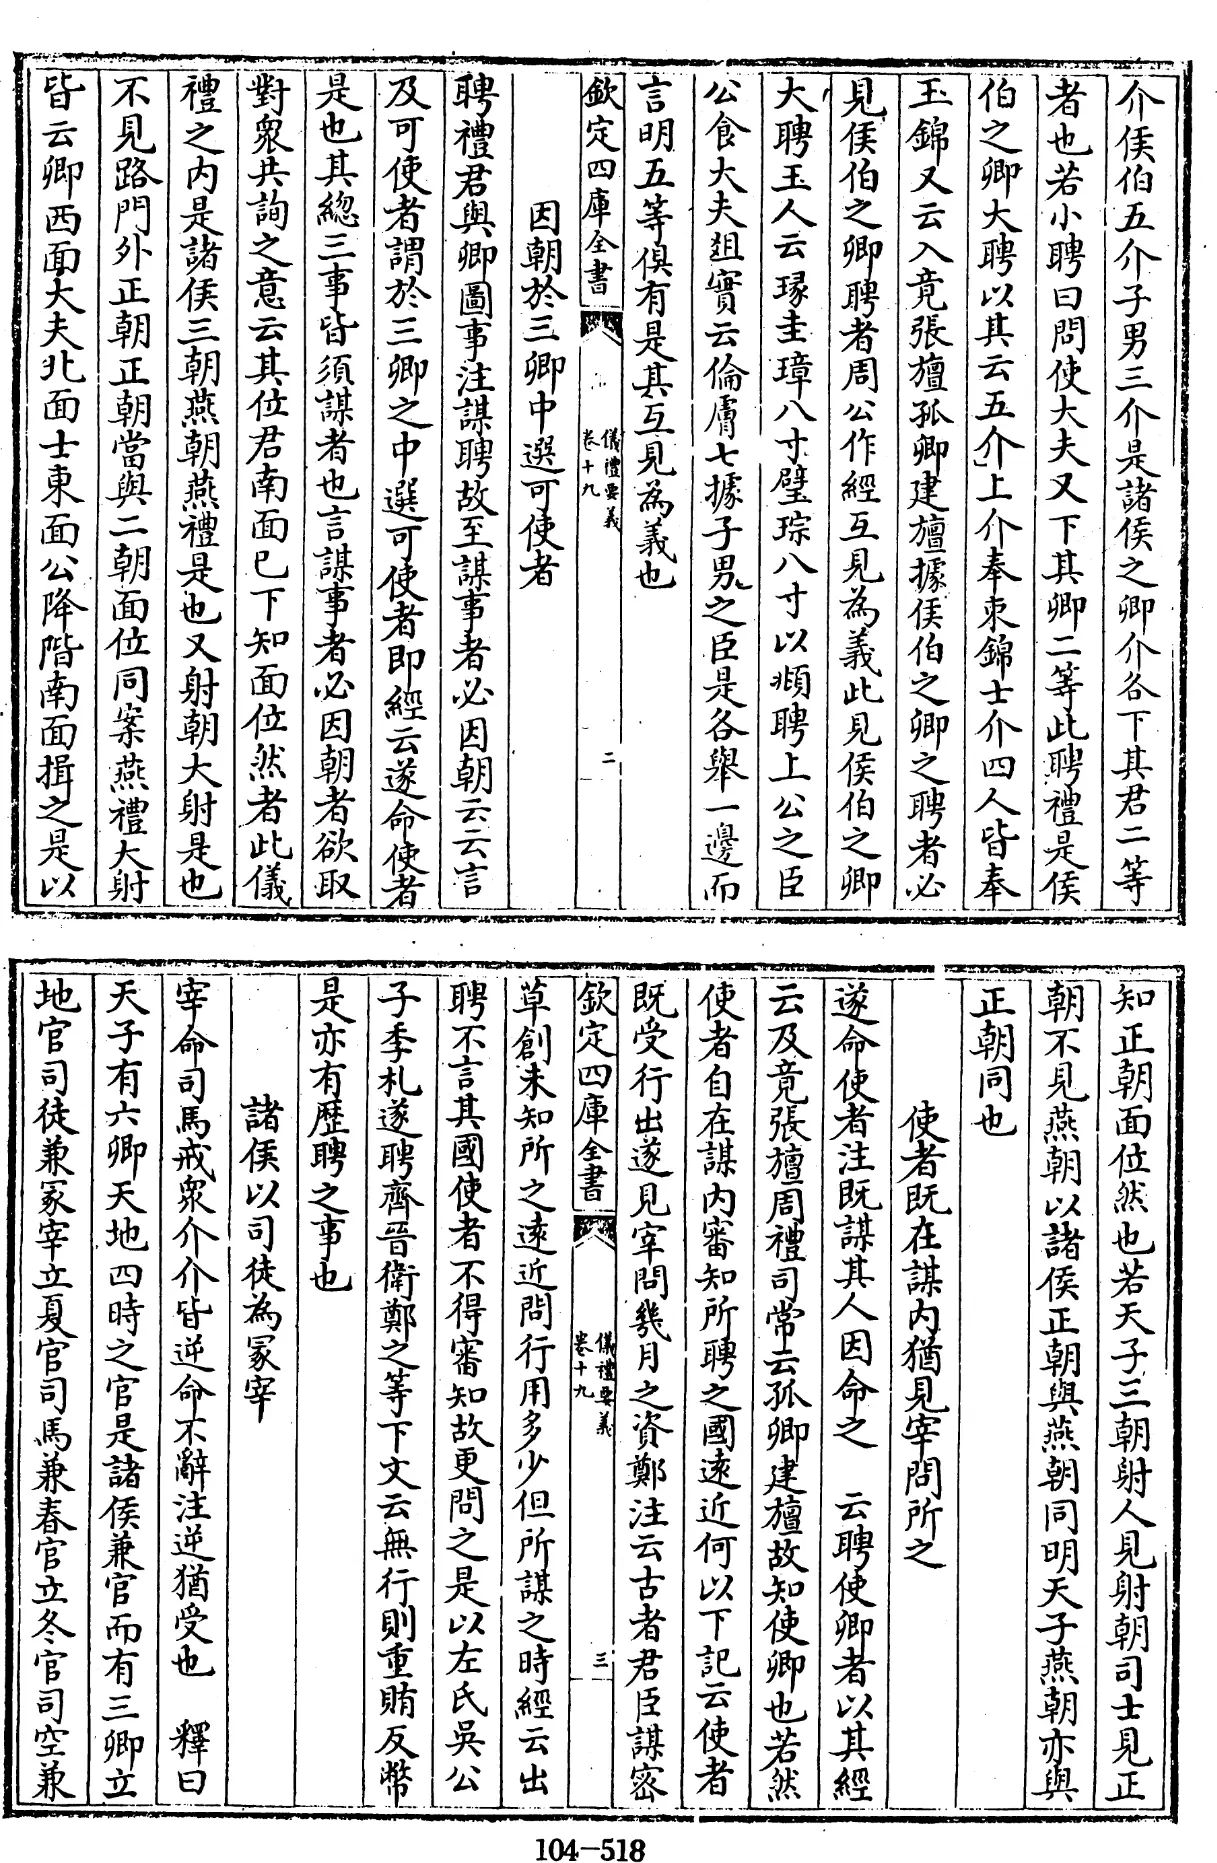 介侯伯五介子男三介是諸侯之卿介各下其君二等
者也若小聘曰問使大夫又下其卿二等此聘禮是侯
伯之卿大聘以其云五介上介奉束錦士介四人皆奉
玉錦又云入竟張旜孤卿建旜據侯伯之卿之聘者必
見侯伯之卿聘者周公作經互見為義此見侯伯之卿
大聘玉人云瑑圭璋八寸璧琮八寸以頫聘上公之臣
公食大夫俎實云倫膚七據子男之臣是各舉一邊而
言明五等俱有是其互見為義也
欽定四庫全書
儀禮要義
卷十九
二
因朝於三卿中選可使者
聘禮君與卿圖事注謀聘故至謀事者必因朝云云言
及可使者謂於三卿之中選可使者即經云遂命使者
是也其總三事皆須謀者也言謀事者必因朝者欲取
對衆共詢之意云其位君南面已下知面位然者此儀
禮之内是諸侯三朝燕朝燕禮是也又射朝大射是也
不見路門外正朝正朝當與二朝面位同案燕禮大射
皆云卿西面大夫北面士東面公降階南面揖之是以
知正朝面位然也若天子三朝射人見射朝司士見正
朝不見燕朝以諸侯正朝與燕朝同明天子燕朝亦與
正朝同也
使者既在謀内猶見宰問所之
遂命使者注既謀其人因命之　云聘使卿者以其經
云及竟張旜周禮司常云孤卿建旜故知使卿也若然
使者自在謀内審知所聘之國遠近何以下記云使者
既受行出遂見宰問幾月之資鄭注云古者君臣謀密
欽定四庫全書
儀禮要義
卷十九
三
草創未知所之遠近問行用多少但所謀之時經云出
聘不言其國使者不得審知故更問之是以左氏吳公
子季札遂聘齊晉衛鄭之等下文云無行則重賄反幣
是亦有歷聘之事也
諸侯以司徒為冡宰
宰命司馬戒衆介介皆逆命不辭注逆猶受也　釋曰
天子有六卿天地四時之官是諸侯兼官而有三卿立
地官司徒兼冡宰立夏官司馬兼春官立冬官司空兼
104-518